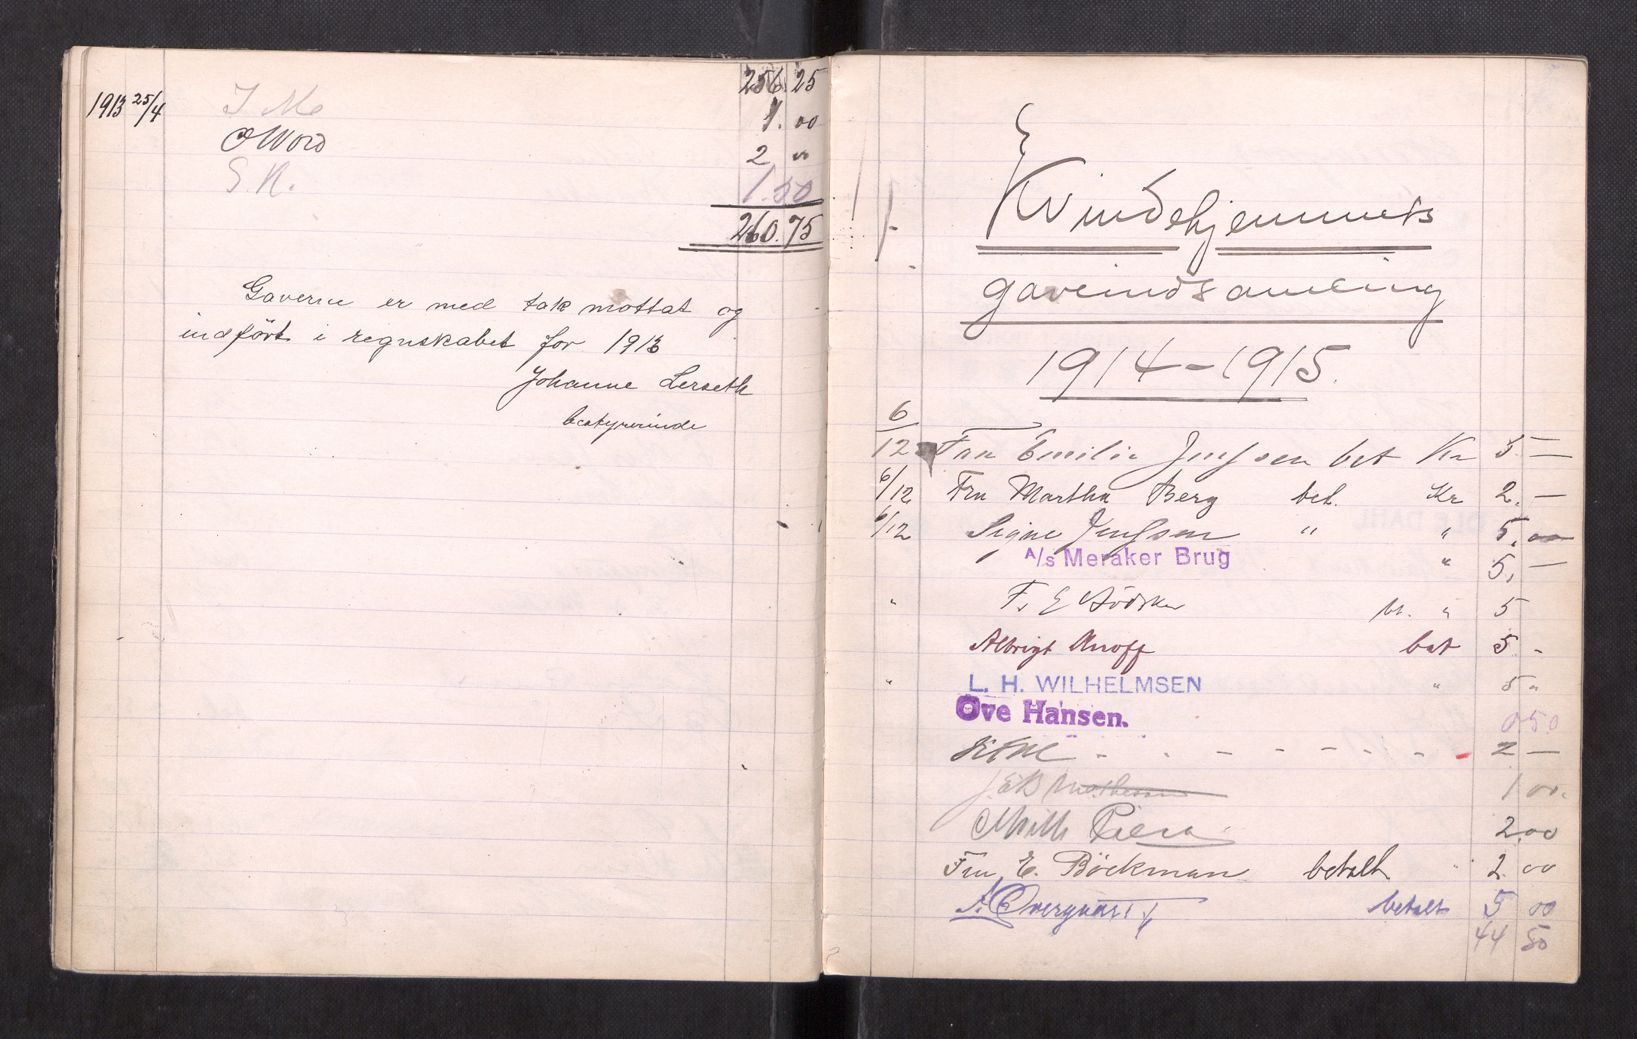 256 25
1913 25/4 I M 1. 00
2 00
S. N. 1.50
260.75
Gaverne er med tak mottat og
indført i regnskabet for 1913
Johanne Lerseth
bestyrerinde
Kvindehjemmets
gaveindsamling
1914-1915.
6/12 Fru Emilie Jenssen bet Kr 5 —
6/12 Fru Martha Berg bet. Kr 2. —
6/12 Signe Jenssen " " 5.00
A/s Meraker Brug " 5. —
" F. E. " 5
Albrigt bet 5 -
" L. H. WILHELMSEN " 5 "
Ove Hansen. 0 50
2 —
1 00.
2.00
Fru E. Böckman betalt " 2. 00
betalt 5 00
44 50